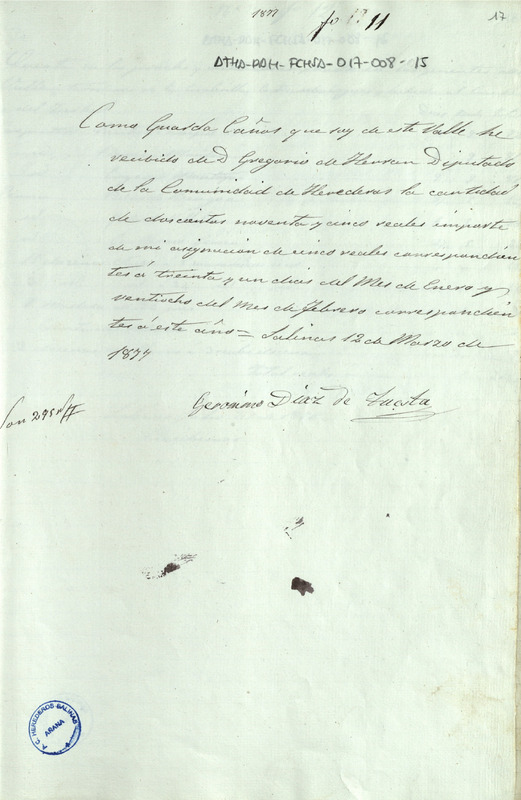 1877
fo 11
17
ATHA-DAH-FCHSA-017-008-15
Como Guarda Caños que soy de este Valle he
recibido de D Gregorio de Herran Diputado
de la Comunidad de Herederos la cantidad
de doscientos noventa y cinco reales importe
de mi asignacion de cinco reales correspondien
tes á treinta y un dias del Mes de Enero y
ventiocho del Mes de Febrero correspondien
tes á este año = Salinas 12 de Marzo de
1877
Geronimo Diaz de Tuesta
Son 295 rs
A. C. HEREDEROS SALINAS
AÑANA